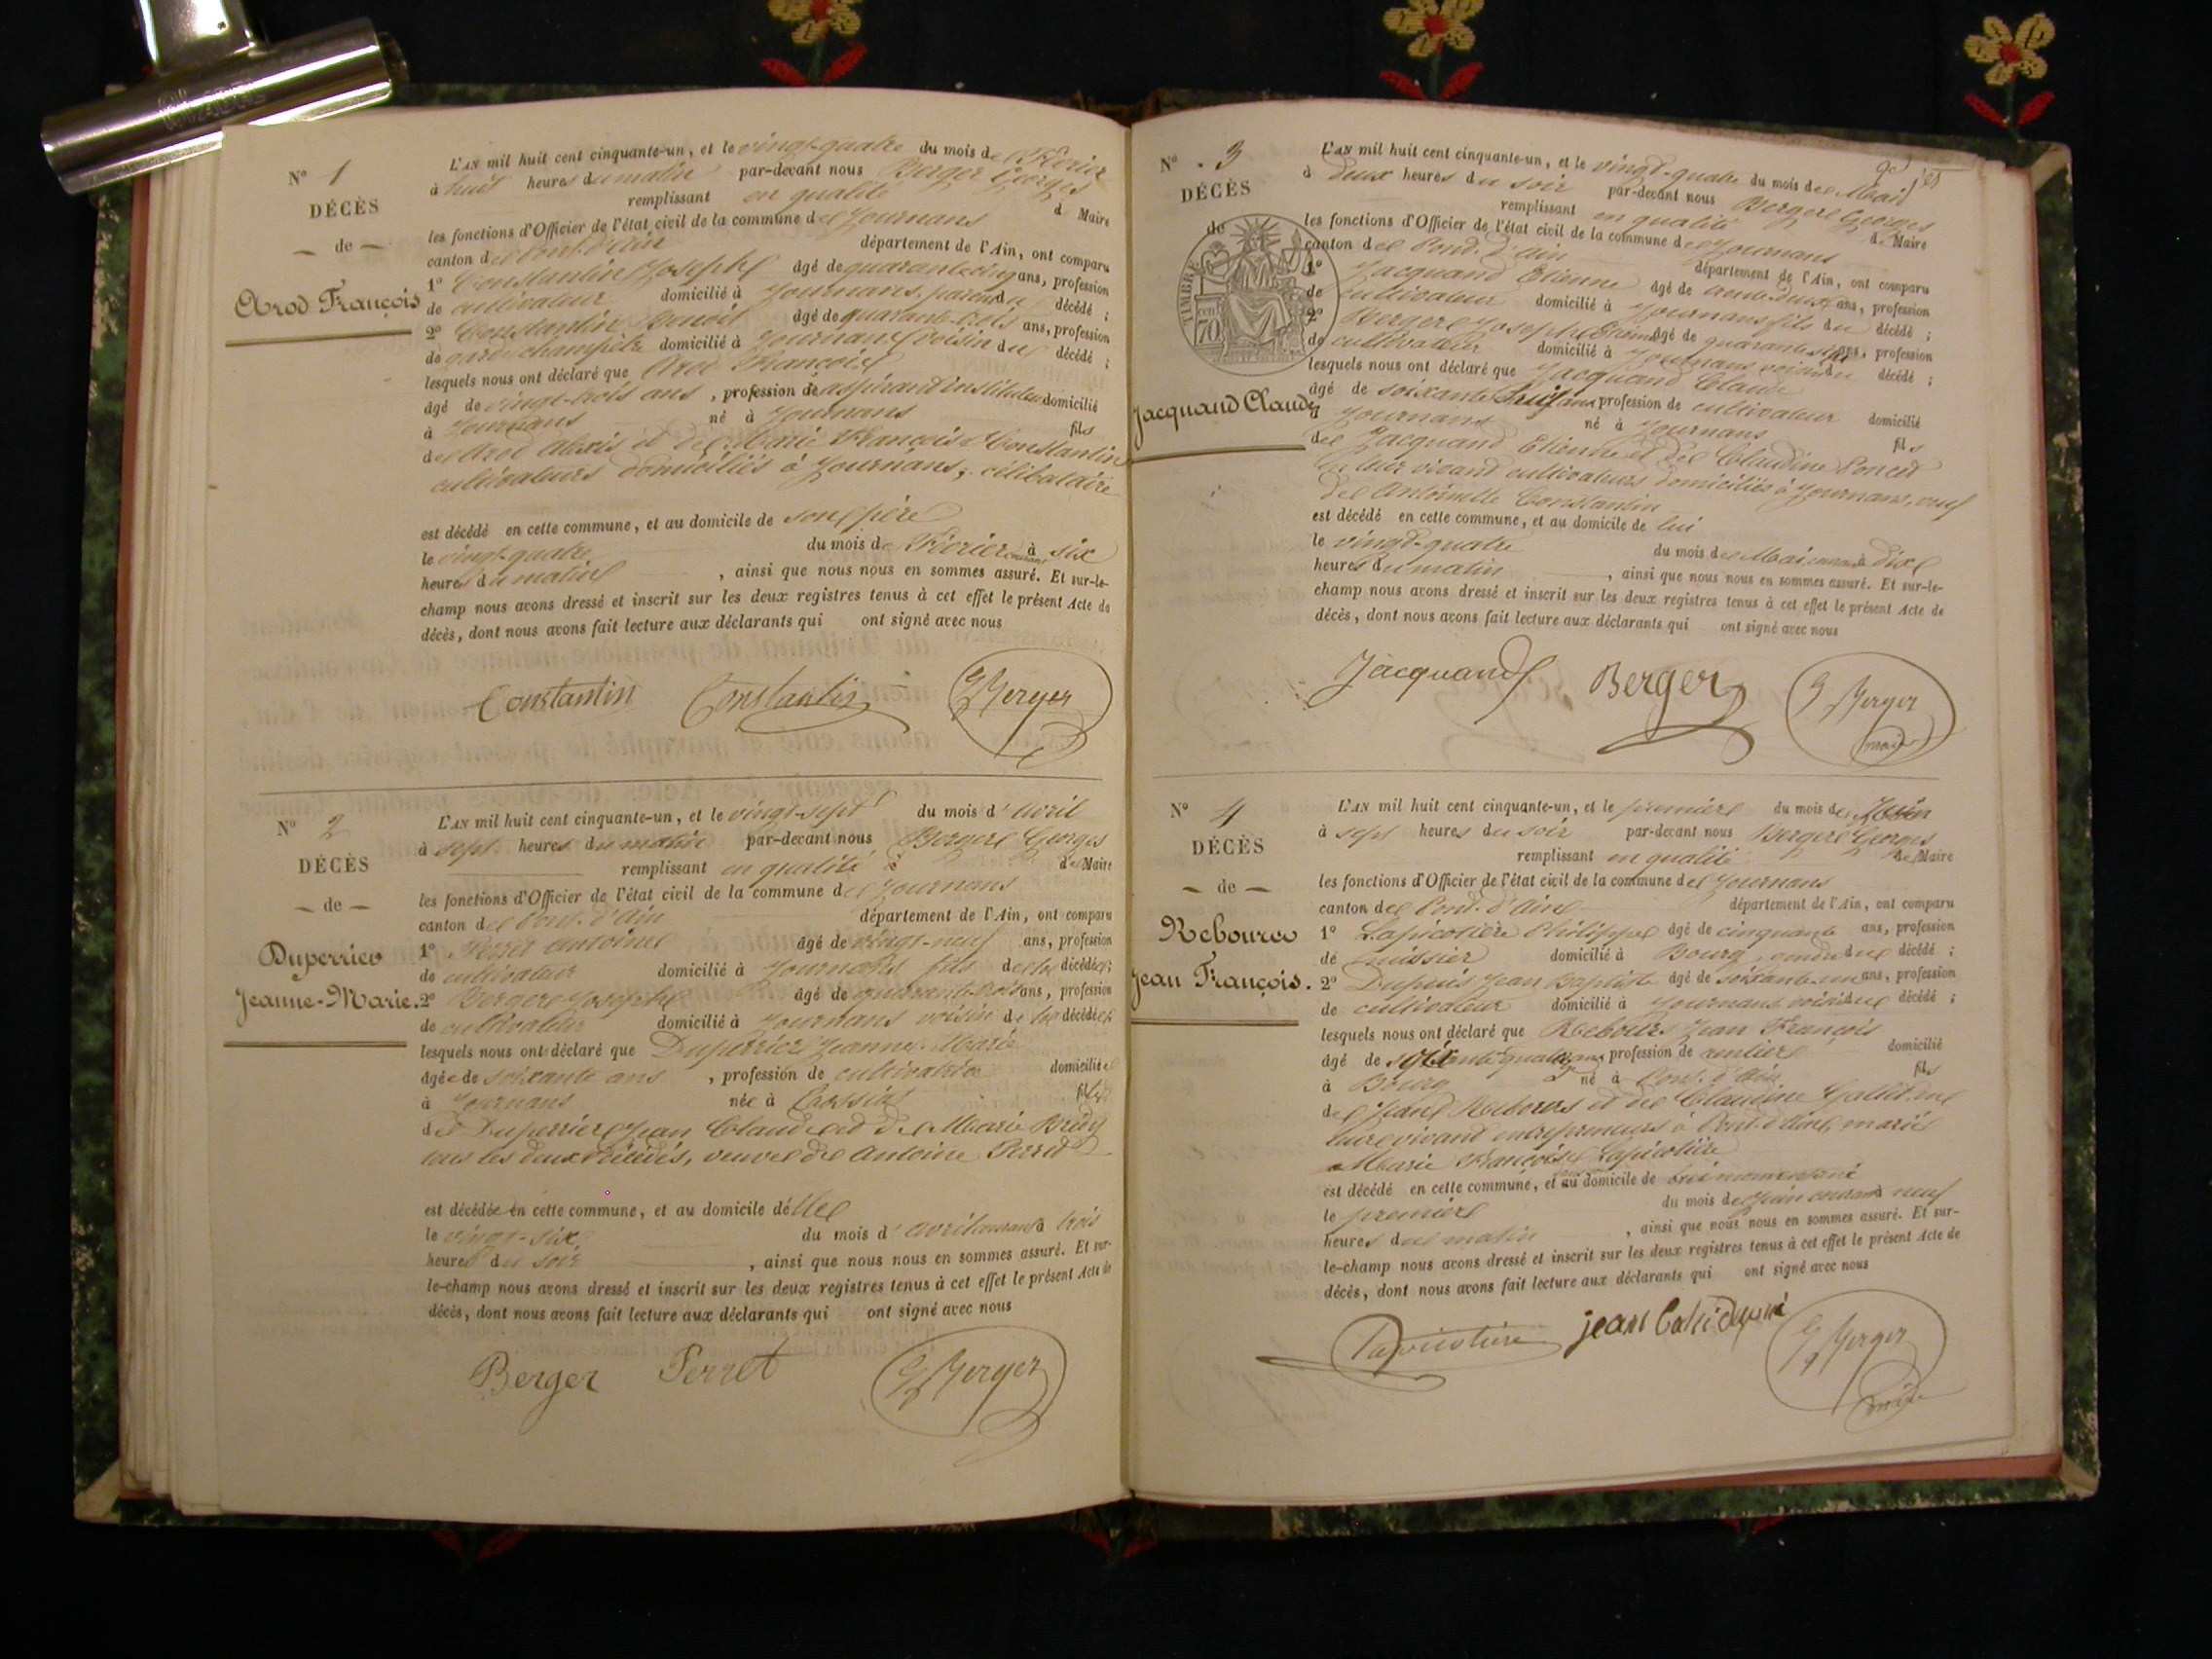 N° 1
DÉCÈS
de
Arod François
L'AN mil huit cent cinquante-un, et le vingt-quatre du mois de Février
à huit heures du matin par-devant nous Berger Georges
remplissant en qualité d Maire
les fonctions d'Officier de l'état civil de la commune de Journans
canton de Pont-d'Ain département de l'Ain, ont comparu
1° Constantin Joseph âgé de quarante cinq ans, profession
de cultivateur domicilié à Journans, parent du décédé ;
2° Constantin Benoit âgé de quarante-trois ans, profession
de garde champêtre domicilié à Journans voisin du décédé ;
lesquels nous ont déclaré que Arod François
âgé de vingt-trois ans, profession de aspirant instituteur domicilié
à Journans né à Journans fils
de Arod Alexis et de Marie Françoise Constantin
cultivateurs domiciliés à Journans, célibataire
est décédé en cette commune, et au domicile de son père
le vingt-quatre du mois de Février courant à six
heures du matin, ainsi que nous nous en sommes assuré. Et sur-le-
champ nous avons dressé et inscrit sur les deux registres tenus à cet effet le présent Acte de
décès, dont nous avons fait lecture aux déclarants qui ont signé avec nous
Constantin Constantin G Berger
N° 2
DÉCÈS
de
Duperrier
Jeanne-Marie.
L'AN mil huit cent cinquante-un, et le vingt-sept du mois d'avril
à sept heures du matin par-devant nous Berger Georges
remplissant en qualité de Maire
les fonctions d'Officier de l'état civil de la commune de Journans
canton de Pont-d'Ain département de l'Ain, ont comparu
1° Perret Antoine âgé de vingt-neuf ans, profession
de cultivateur domicilié à Journans fils de la décédée ;
2° Berger Joseph âgé de quarante-trois ans, profession
de cultivateur domicilié à Journans voisin de la décédée ;
lesquels nous ont déclaré que Duperrier Jeanne-Marie
âgée de soixante ans, profession de cultivatrice domiciliée
à Journans née à fille
de Duperrier Jean Claude et de Marie
tous les deux décédés, veuve de Antoine Perret
est décédée en cette commune, et au domicile d'elle
le vingt-six du mois d'avril courant à trois
heures du soir, ainsi que nous nous en sommes assuré. Et sur-
le-champ nous avons dressé et inscrit sur les deux registres tenus à cet effet le présent Acte de
décès, dont nous avons fait lecture aux déclarants qui ont signé avec nous
Berger Perret G Berger
N° 3
DÉCÈS
de
TIMBRE
70
Jacquand Claude
L'AN mil huit cent cinquante-un, et le vingt-quatre du mois de Mai
à deux heures du soir par-devant nous Berger Georges
remplissant en qualité de Maire
les fonctions d'Officier de l'état civil de la commune de Journans
canton de Pont-d'Ain département de l'Ain, ont comparu
1° Jacquand Etienne âgé de trente-deux ans, profession
de cultivateur domicilié à Journans fils du décédé ;
2° Berger Joseph âgé de quarante ans, profession
de cultivateur domicilié à Journans voisin du décédé ;
lesquels nous ont déclaré que Jacquand Claude
âgé de soixante huit ans profession de cultivateur domicilié
à Journans né à Journans fils
de Jacquand Etienne et de Claudine Poncet
de leur vivant cultivateurs domiciliés à Journans, veuf
de Antoinette Constantin
est décédé en cette commune, et au domicile de lui
le vingt-quatre du mois de Mai courant à dix
heures du matin, ainsi que nous nous en sommes assuré. Et sur-le-
champ nous avons dressé et inscrit sur les deux registres tenus à cet effet le présent Acte de
décès, dont nous avons fait lecture aux déclarants qui ont signé avec nous
Jacquand Berger G Berger
maire
N° 4
DÉCÈS
de
Rebource
Jean François.
L'AN mil huit cent cinquante-un, et le premier du mois de Juin
à sept heures du soir par-devant nous Berger Georges
remplissant en qualité de Maire
les fonctions d'Officier de l'état civil de la commune de Journans
canton de Pont-d'Ain département de l'Ain, ont comparu
1° Lapicotière Philippe âgé de cinquante ans, profession
de huissier domicilié à Bourg, du décédé ;
2° Dupuis Jean Baptiste âgé de soixante-un ans, profession
de cultivateur domicilié à Journans voisin du décédé ;
lesquels nous ont déclaré que Rebours Jean François
âgé de ans profession de rentier domicilié
à Bourg né à Pont-d'Ain fils
de Jean Rebours et de Claudine
leur vivant entrepreneurs à Pont-d'Ain, marié
à Marie Françoise Lapicotière
est décédé en cette commune, et au domicile de
le premier du mois de Juin courant à neuf
heures du matin, ainsi que nous nous en sommes assuré. Et sur-
le-champ nous avons dressé et inscrit sur les deux registres tenus à cet effet le présent Acte de
décès, dont nous avons fait lecture aux déclarants qui ont signé avec nous
Lapicotière jean G Berger
maire